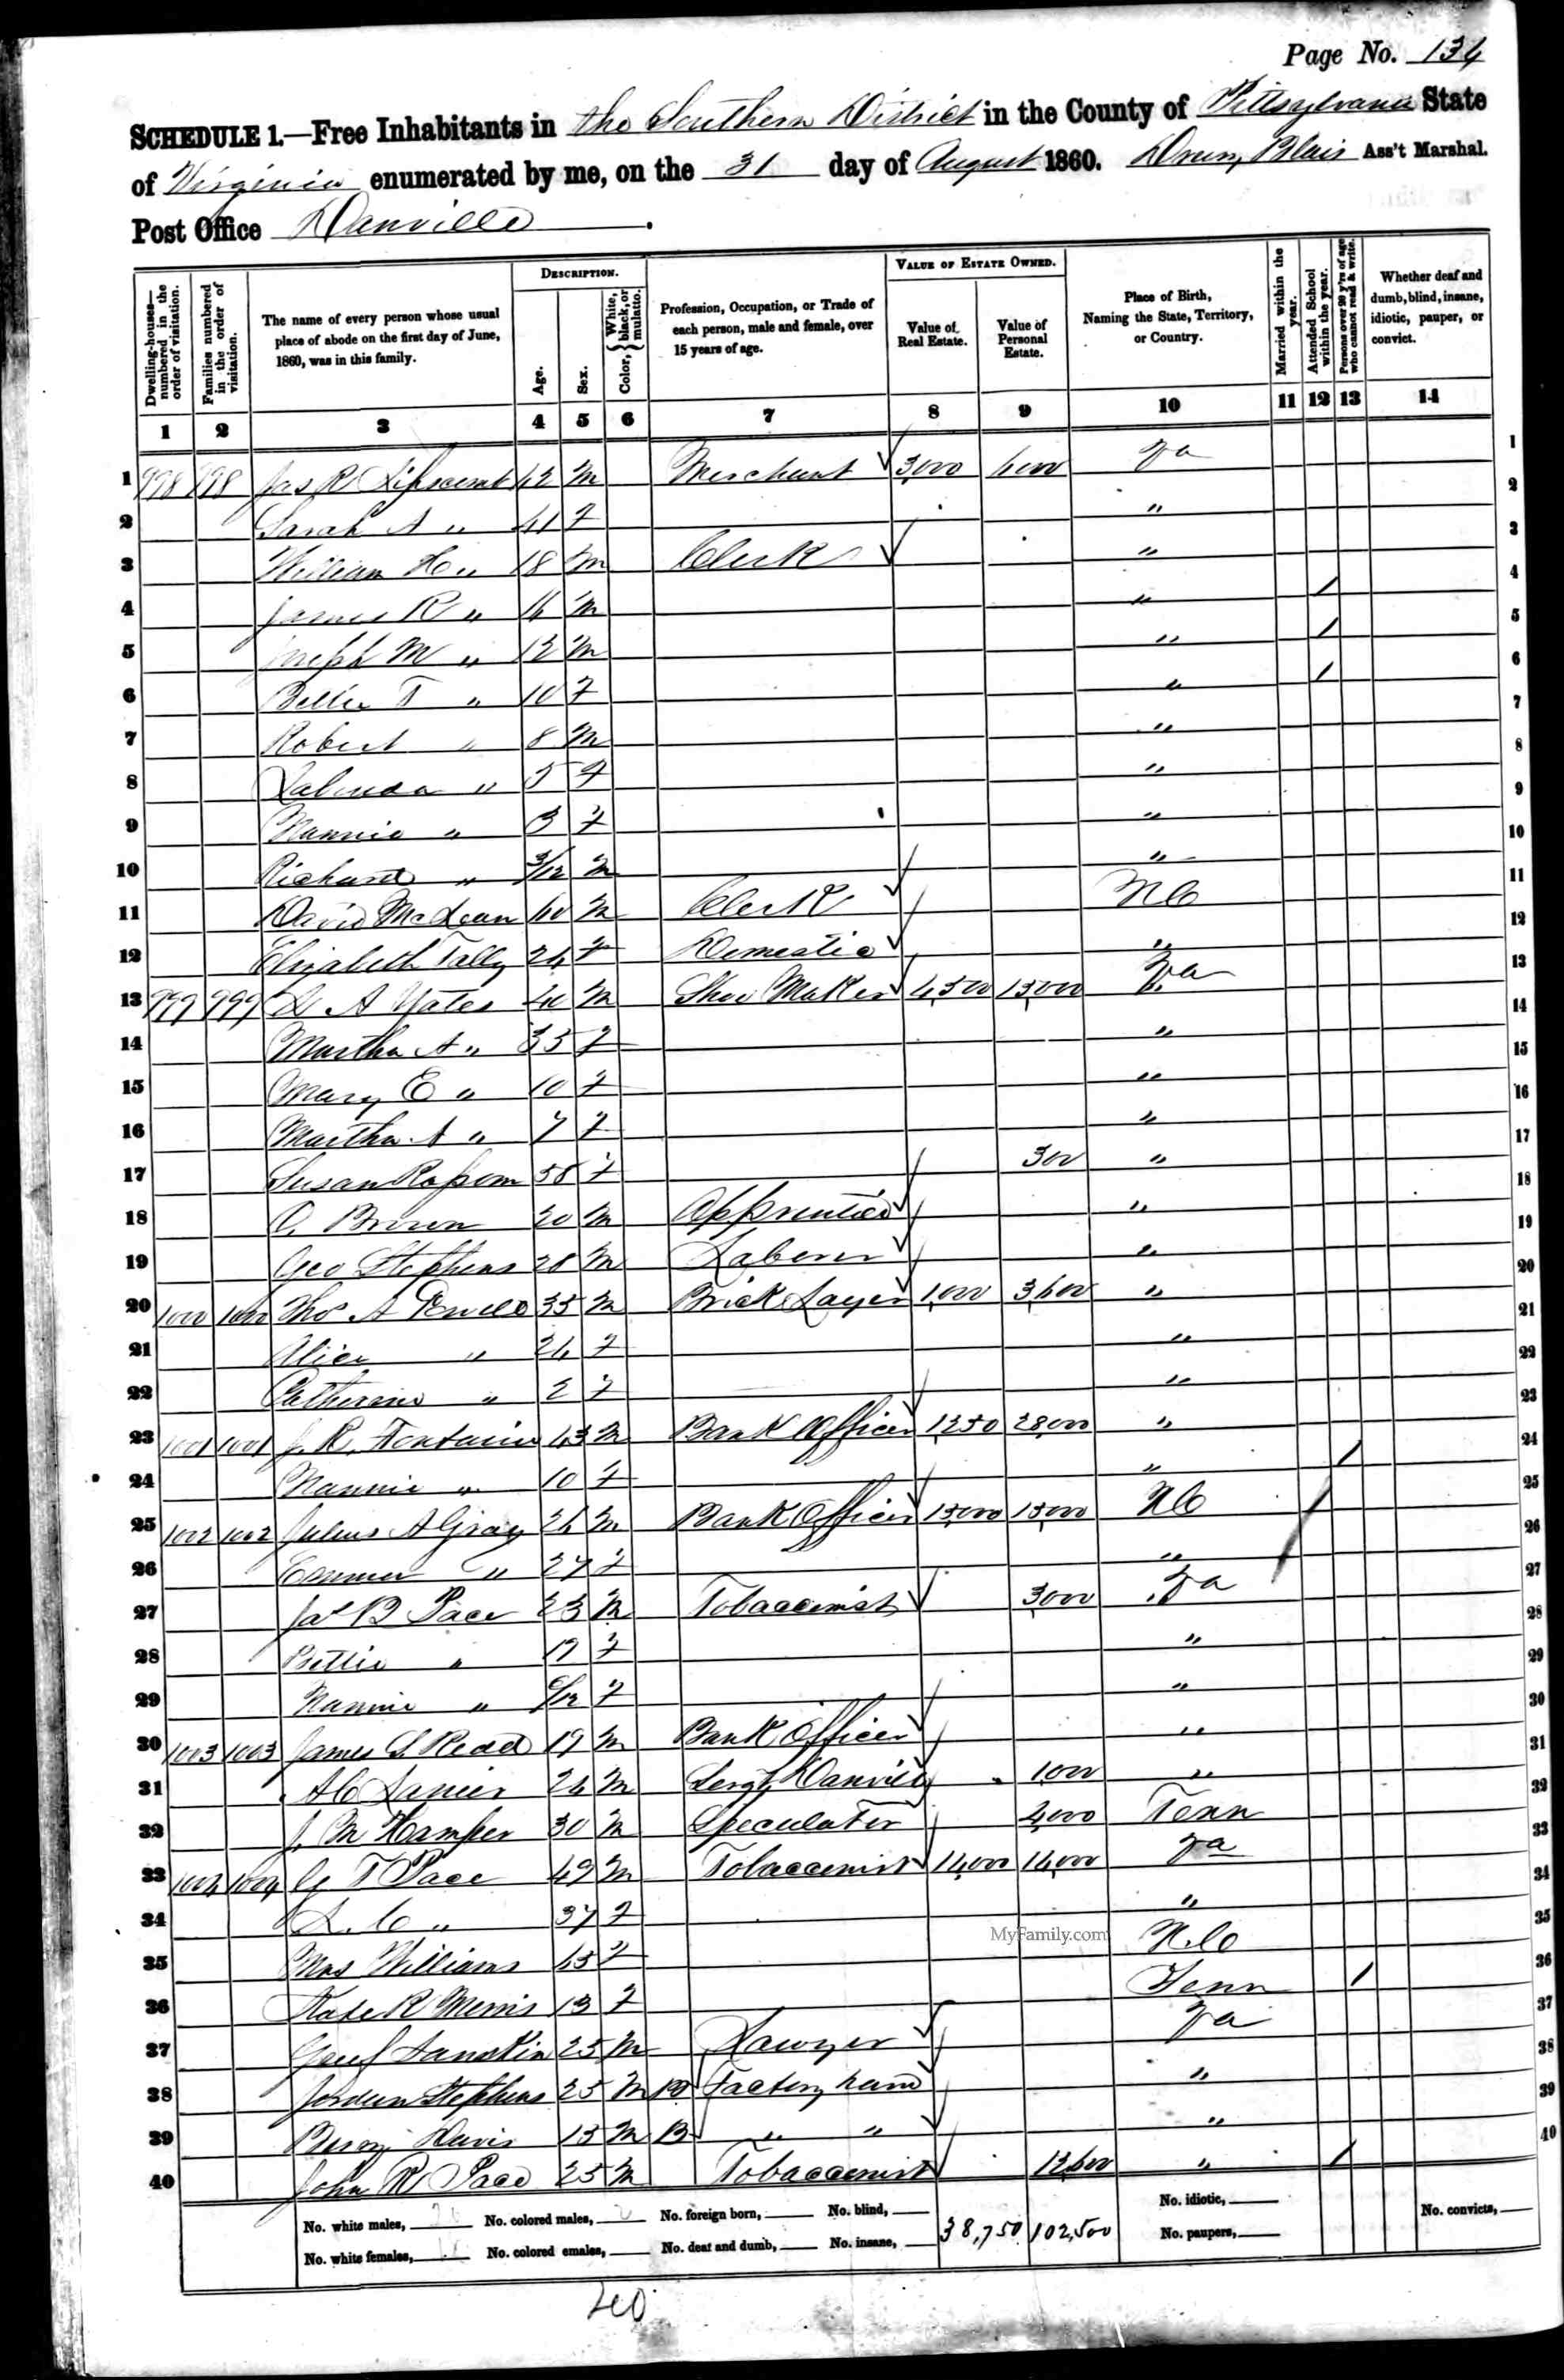 Page No. 134
SCHEDULE 1.—Free Inhabitants in the Southern District in the County of Pittsylvania State
of Virginia enumerated by me, on the 31 day of August 1860. Drury Blair Ass't Marshal.
Post Office Danville.
Dwelling-houses—numbered in the order of visitation.
Families numbered in the order of visitation.
The name of every person whose usual place of abode on the first day of June, 1860, was in this family.
DESCRIPTION.
Age.
Sex.
Color, White, black, or mulatto.
Profession, Occupation, or Trade of each person, male and female, over 15 years of age.
VALUE OF ESTATE OWNED.
Value of Real Estate.
Value of Personal Estate.
Place of Birth, Naming the State, Territory, or Country.
Married within the year.
Attended School within the year.
Persons over 20 y'rs of age who cannot read & write.
Whether deaf and dumb, blind, insane, idiotic, pauper, or convict.
1 2 3 4 5 6 7 8 9 10 11 12 13 14
1 998 998 Jas R Lipscomb 42 M Merchant 3,000 Va 1
2 Sarah A " 41 F " 2
3 William H " 18 M Clerk " 3
4 James R " M " / 4
5 Joseph M " 12 M " / 5
6 Bettie T " 10 F " / 6
7 Robert " 8 M " 7
8 " 5 F " 8
9 Nannie " 3 F " 9
10 Richard " 3/12 M " 10
11 David McLean M Clerk NC 11
12 Elizabeth Tally 24 F Domestic " 12
13 999 999 L A Yates 40 M Shoe Maker 4,500 15,000 Va 13
14 Martha A " 35 F " 14
15 Mary E " 10 F " 15
16 Martha A " 7 F " 16
17 Susan 58 F 300 " 17
18 Brown 20 M Apprentice " 18
19 Geo Stephens 28 M Laborer " 19
20 1000 1000 Thos A 35 M Brick Layer 1,000 3,600 " 20
21 Alice " 24 F " 21
22 Catherine " 2 F " 22
23 1001 1001 J. R. Fontaine 43 M Bank Officer 1,250 28,000 " 23
24 Nannie " 10 F " / 24
25 1002 1002 Julius A Gray 26 M Bank Officer 15,000 15,000 NC / 25
26 " 27 F " 26
27 Jas B Pace 23 M Tobacconist 3,000 Va 27
28 Bettie " 19 F " 28
29 Nannie " F " 29
30 1003 1003 James S Redd 19 M Bank Officer " 30
31 A C Lanier 24 M Sergt Danville 1,000 " 31
32 J. M 30 M Speculator 4,000 Tenn 32
33 1004 1004 G T Pace 49 M Tobacconist 14,000 14,000 Va 33
34 L. C " 37 F " 34
35 Mrs Williams F N.C 35
36 Kate R 13 F Tenn / 36
37 25 M Lawyer Va 37
38 Jordan Stephens 25 M B Factory hand " 38
39 Davis 13 M B " " " 39
40 John R Pace 25 M Tobacconist 12,600 " / 40
No. white males, No. colored males, No. foreign born, No. blind, No. idiotic,
38,750 102,500
No. white females, No. colored emales, No. deaf and dumb, No. insane, No. paupers, No. convicts,
40
MyFamily.com